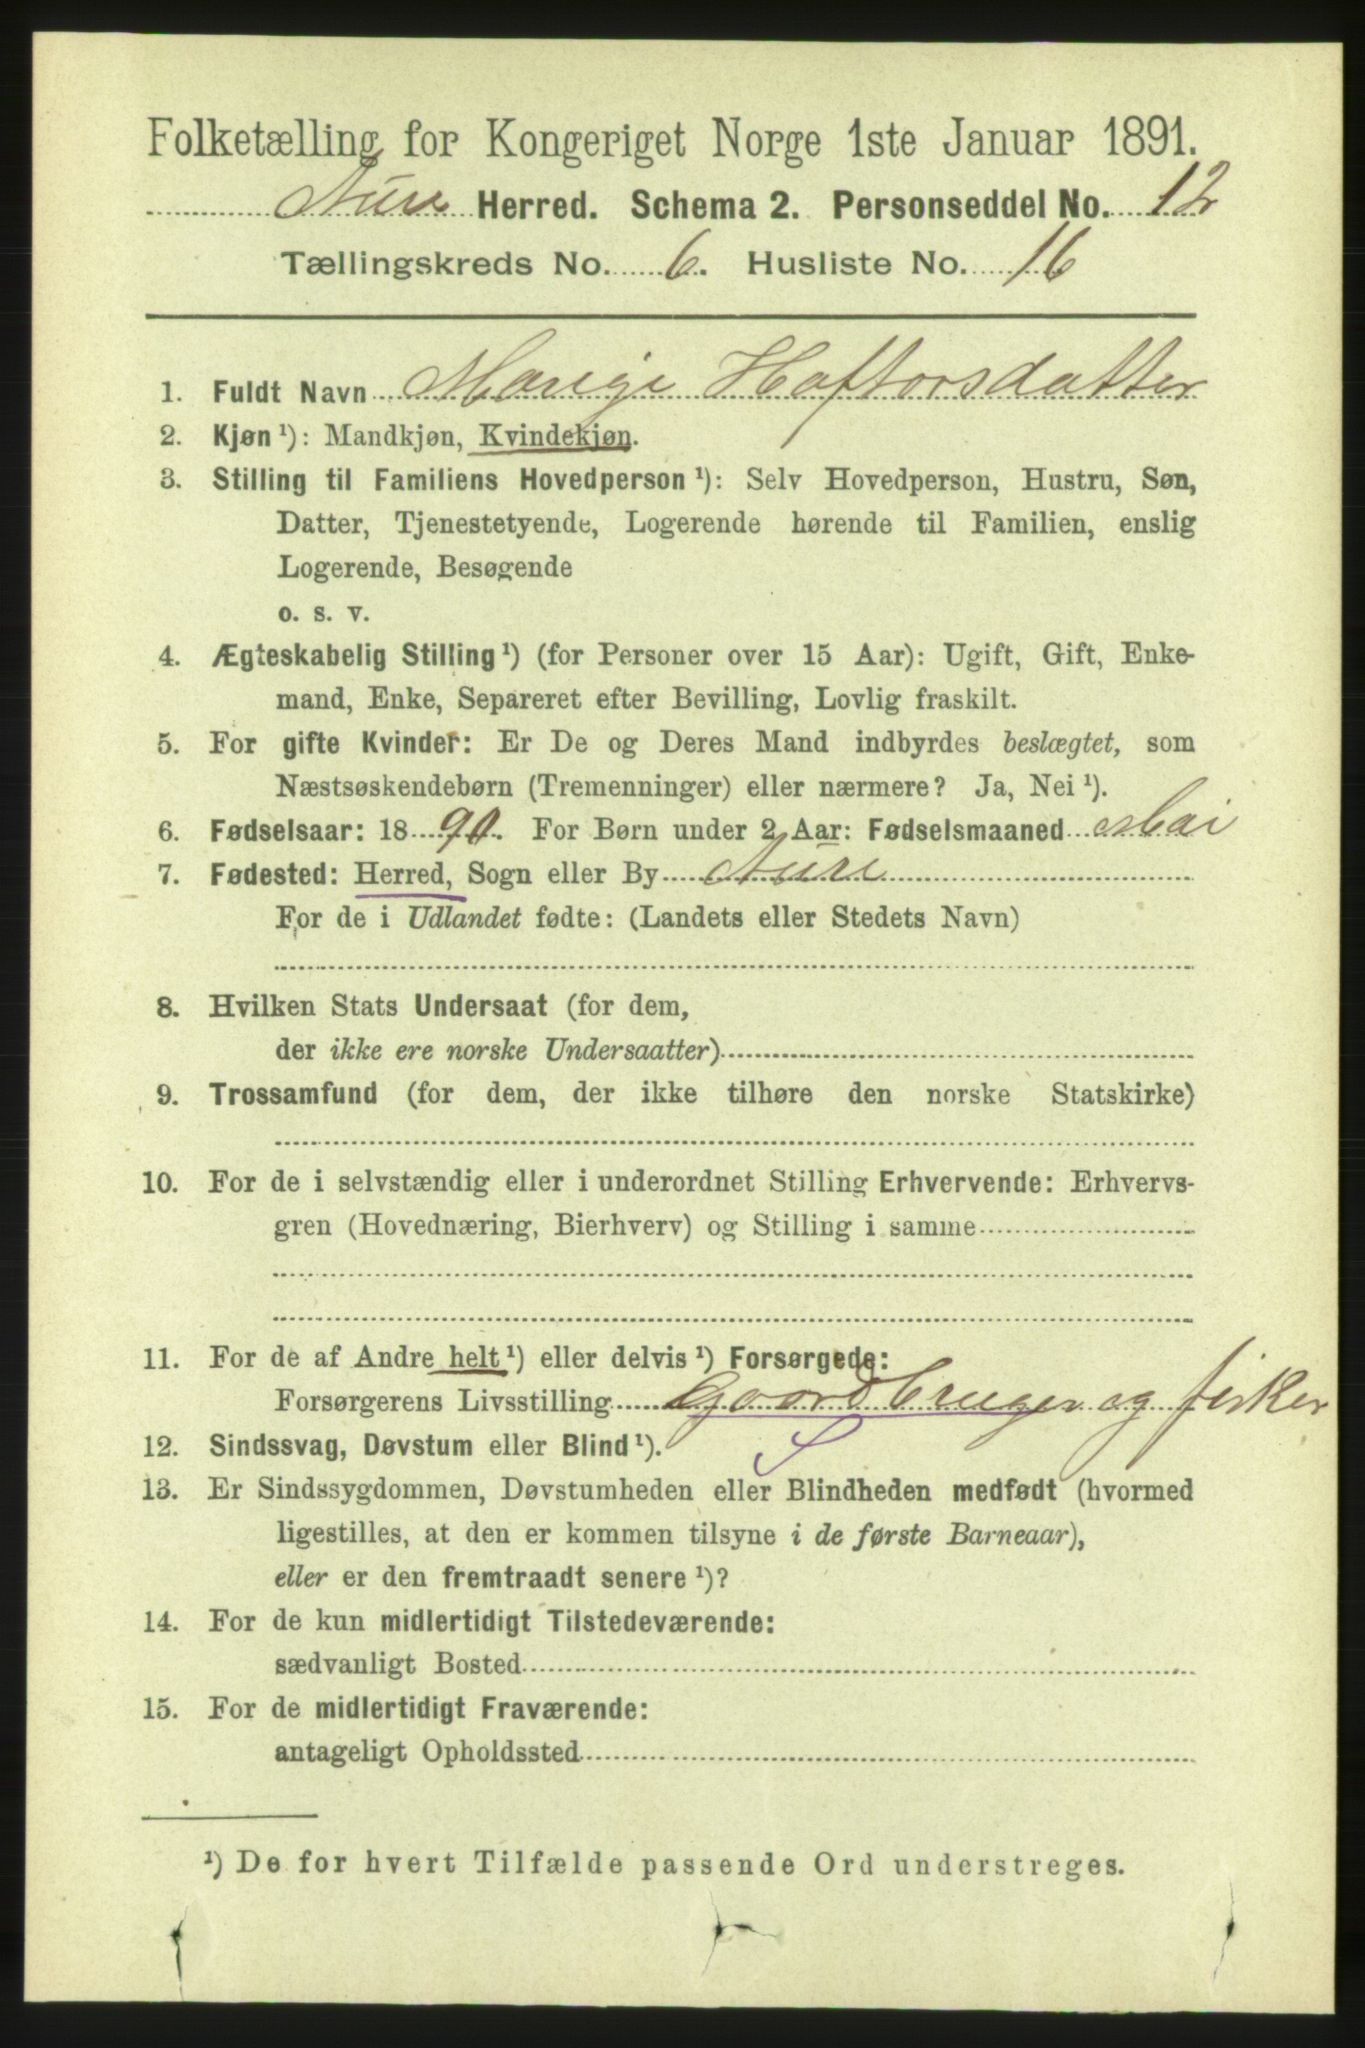 Folketælling for Kongeriget Norge 1ste Januar 1891.
Aure Herred. Schema 2. Personseddel No. 12
Tællingskreds No. 6. Husliste No. 16
1. Fuldt Navn Marige Haftorsdatter
2. Kjøn ¹): Mandkjøn, Kvindekjøn.
3. Stilling til Familiens Hovedperson ¹): Selv Hovedperson, Hustru, Søn,
Datter, Tjenestetyende, Logerende hørende til Familien, enslig
Logerende, Besøgende
o. s. v.
4. Ægteskabelig Stilling ¹) (for Personer over 15 Aar): Ugift, Gift, Enke-
mand, Enke, Separeret efter Bevilling, Lovlig fraskilt.
5. For gifte Kvinder: Er De og Deres Mand indbyrdes beslægtet, som
Næstsøskendebørn (Tremenninger) eller nærmere? Ja, Nei ¹).
6. Fødselsaar: 1890. For Børn under 2 Aar: Fødselsmaaned Mai
7. Fødested: Herred, Sogn eller By Aure
For de i Udlandet fødte: (Landets eller Stedets Navn)
8. Hvilken Stats Undersaat (for dem,
der ikke ere norske Undersaatter)
9. Trossamfund (for dem, der ikke tilhøre den norske Statskirke)
10. For de i selvstændig eller i underordnet Stilling Erhvervende: Erhvervs-
gren (Hovednæring, Bierhverv) og Stilling i samme
11. For de af Andre helt ¹) eller delvis ¹) Forsørgede:
Forsørgerens Livsstilling Gaardbruger og fisker
12. Sindssvag, Døvstum eller Blind ¹). S
13. Er Sindssygdommen, Døvstumheden eller Blindheden medfødt (hvormed
ligestilles, at den er kommen tilsyne i de første Barneaar),
eller er den fremtraadt senere ¹)?
14. For de kun midlertidigt Tilstedeværende:
sædvanligt Bosted
15. For de midlertidigt Fraværende:
antageligt Opholdssted
¹) De for hvert Tilfælde passende Ord understreges.